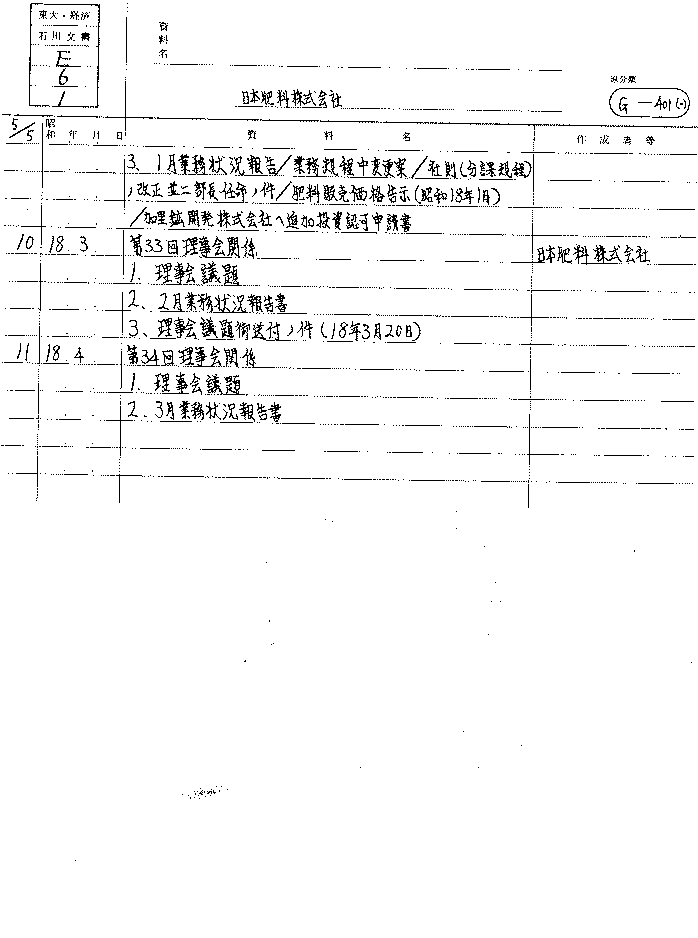 東大・経済
石川文書
E
6
1
資料名
日本肥料株式会社
原分類
G-401(-)
5/5
昭和 年 月 日
資 料 名
作成者等
3. 1月業務状況報告/業務規程中変更案/社則(分課規程)
ノ改正並ニ部長任命ノ件/肥料販売価格告示(昭和18年1月)
/加里鉱開発株式会社ヘ追加投資認可申請書
10 18 3 第33回理事会関係 日本肥料株式会社
1. 理事会議題
2. 2月業務状況報告書
3. 理事会議題御送付ノ件(18年3月20日)
11 18 4 第34回理事会関係
1. 理事会議題
2. 3月業務状況報告書